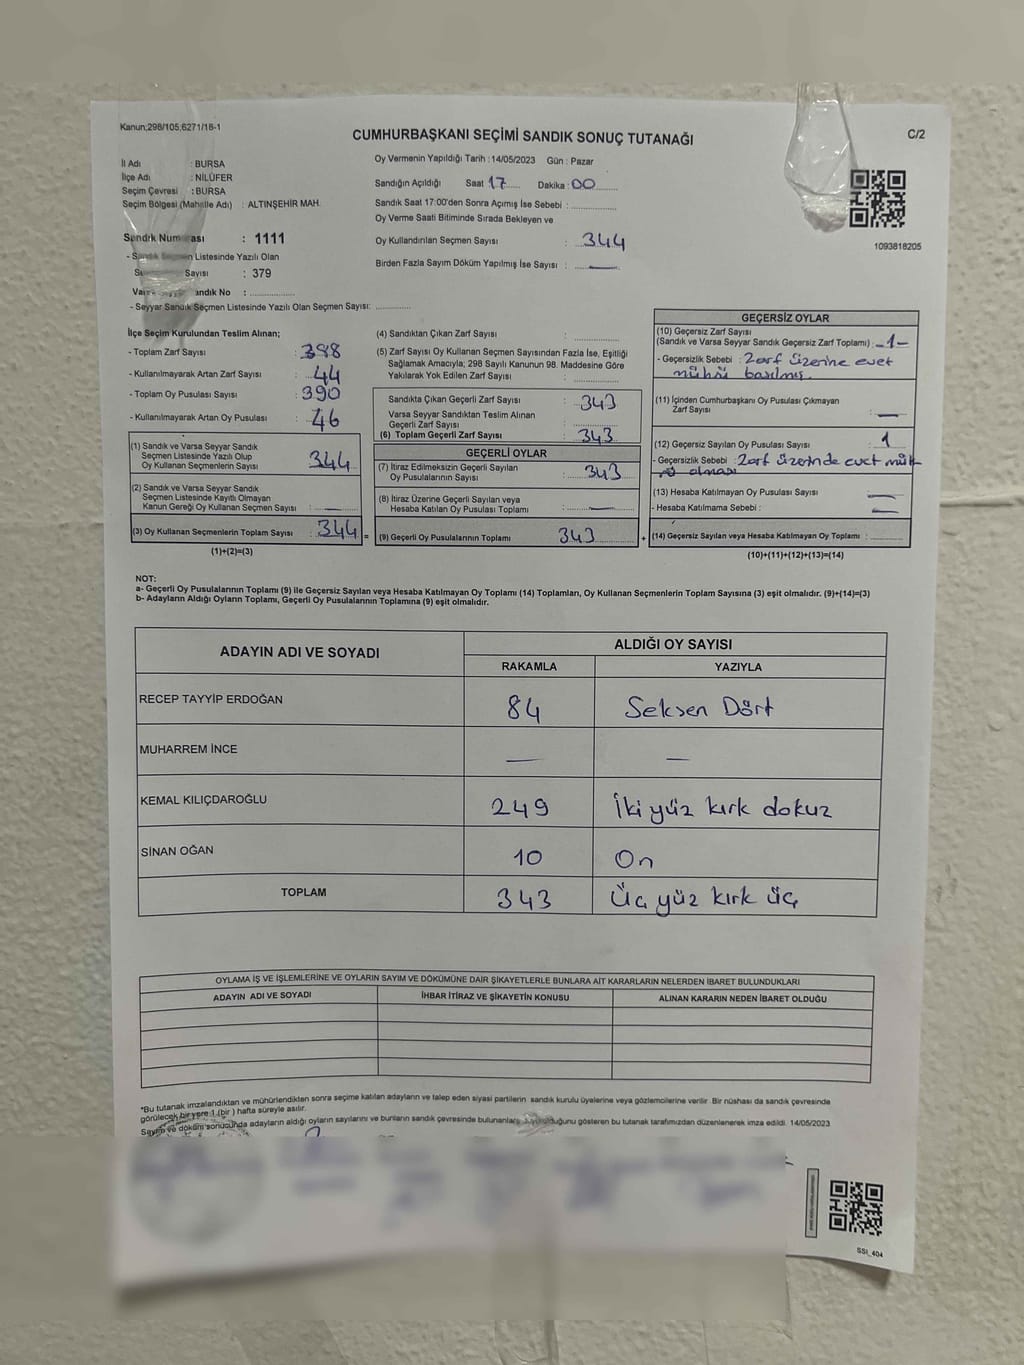 Kanun;298/105;6271/18-1
CUMHURBAŞKANI SEÇİMİ SANDIK SONUÇ TUTANAĞI
C/2
İl Adı : BURSA
İlçe Adı : NİLÜFER
Seçim Çevresi : BURSA
Seçim Bölgesi (Mahalle Adı) : ALTINŞEHİR MAH.
Sandık Numarası : 1111
- Sandık Seçmen Listesinde Yazılı Olan
Sayısı : 379
andık No :
- Seyyar Sandık Seçmen Listesinde Yazılı Olan Seçmen Sayısı:
Oy Vermenin Yapıldığı Tarih : 14/05/2023 Gün : Pazar
Sandığın Açıldığı Saat 17 Dakika : 00
Sandık Saat 17:00'den Sonra Açımış İse Sebebi :
Oy Verme Saati Bitiminde Sırada Bekleyen ve
Oy Kullandırılan Seçmen Sayısı : 344
Birden Fazla Sayım Döküm Yapılmış İse Sayısı : —
1093818205
İlçe Seçim Kurulundan Teslim Alınan;
- Toplam Zarf Sayısı : 388
- Kullanılmayarak Artan Zarf Sayısı : 44
- Toplam Oy Pusulası Sayısı : 390
- Kullanılmayarak Artan Oy Pusulası : 46
(1) Sandık ve Varsa Seyyar Sandık
Seçmen Listesinde Yazılı Olup
Oy Kullanan Seçmenlerin Sayısı : 344
(2) Sandık ve Varsa Seyyar Sandık
Seçmen Listesinde Kayıtlı Olmayan
Kanun Gereği Oy Kullanan Seçmen Sayısı : —
(3) Oy Kullanan Seçmenlerin Toplam Sayısı : 344 =
(1)+(2)=(3)
(4) Sandıktan Çıkan Zarf Sayısı :
(5) Zarf Sayısı Oy Kullanan Seçmen Sayısından Fazla İse, Eşitliği
Sağlamak Amacıyla, 298 Sayılı Kanunun 98. Maddesine Göre
Yakılarak Yok Edilen Zarf Sayısı :
Sandıkta Çıkan Geçerli Zarf Sayısı : 343
Varsa Seyyar Sandıktan Teslim Alınan
Geçerli Zarf Sayısı :
(6) Toplam Geçerli Zarf Sayısı : 343
GEÇERLİ OYLAR
(7) İtiraz Edilmeksizin Geçerli Sayılan
Oy Pusulalarının Sayısı : 343
(8) İtiraz Üzerine Geçerli Sayılan veya
Hesaba Katılan Oy Pusulası Toplamı : —
(9) Geçerli Oy Pusulalarının Toplamı 343 +
GEÇERSİZ OYLAR
(10) Geçersiz Zarf Sayısı
(Sandık ve Varsa Seyyar Sandık Geçersiz Zarf Toplamı) : -1-
- Geçersizlik Sebebi : Zarf üzerine evet
mührü basılmış
(11) İçinden Cumhurbaşkanı Oy Pusulası Çıkmayan
Zarf Sayısı : —
(12) Geçersiz Sayılan Oy Pusulası Sayısı : 1
- Geçersizlik Sebebi : Zarf üzerinde evet müh-
rü olması
(13) Hesaba Katılmayan Oy Pusulası Sayısı : —
- Hesaba Katılmama Sebebi : —
(14) Geçersiz Sayılan veya Hesaba Katılmayan Oy Toplamı :
(10)+(11)+(12)+(13)=(14)
NOT:
a- Geçerli Oy Pusulalarının Toplamı (9) ile Geçersiz Sayılan veya Hesaba Katılmayan Oy Toplamı (14) Toplamları, Oy Kullanan Seçmenlerin Toplam Sayısına (3) eşit olmalıdır. (9)+(14)=(3)
b- Adayların Aldığı Oyların Toplamı, Geçerli Oy Pusulalarının Toplamına (9) eşit olmalıdır.
ADAYIN ADI VE SOYADI
ALDIĞI OY SAYISI
RAKAMLA YAZIYLA
RECEP TAYYİP ERDOĞAN 84 Seksen Dört
MUHARREM İNCE — —
KEMAL KILIÇDAROĞLU 249 İki yüz kırk dokuz
SİNAN OĞAN 10 On
TOPLAM 343 Üç yüz kırk üç
OYLAMA İŞ VE İŞLEMLERİNE VE OYLARIN SAYIM VE DÖKÜMÜNE DAİR ŞİKAYETLERLE BUNLARA AİT KARARLARIN NELERDEN İBARET BULUNDUKLARI
ADAYIN ADI VE SOYADI İHBAR İTİRAZ VE ŞİKAYETİN KONUSU ALINAN KARARIN NEDEN İBARET OLDUĞU
*Bu tutanak imzalandıktan ve mühürlendikten sonra seçime katılan adayların ve talep eden siyasi partilerin sandık kurulu üyelerine veya gözlemcilerine verilir. Bir nüshası da sandık çevresinde
görülecek bir yere 1 (bir ) hafta süreyle asılır.
Sayım ve döküm sonucunda adayların aldığı oyların sayılarını ve bunların sandık çevresinde bulunanlara duyurulduğunu gösteren bu tutanak tarafımızdan düzenlenerek imza edildi. 14/05/2023
SSI_404